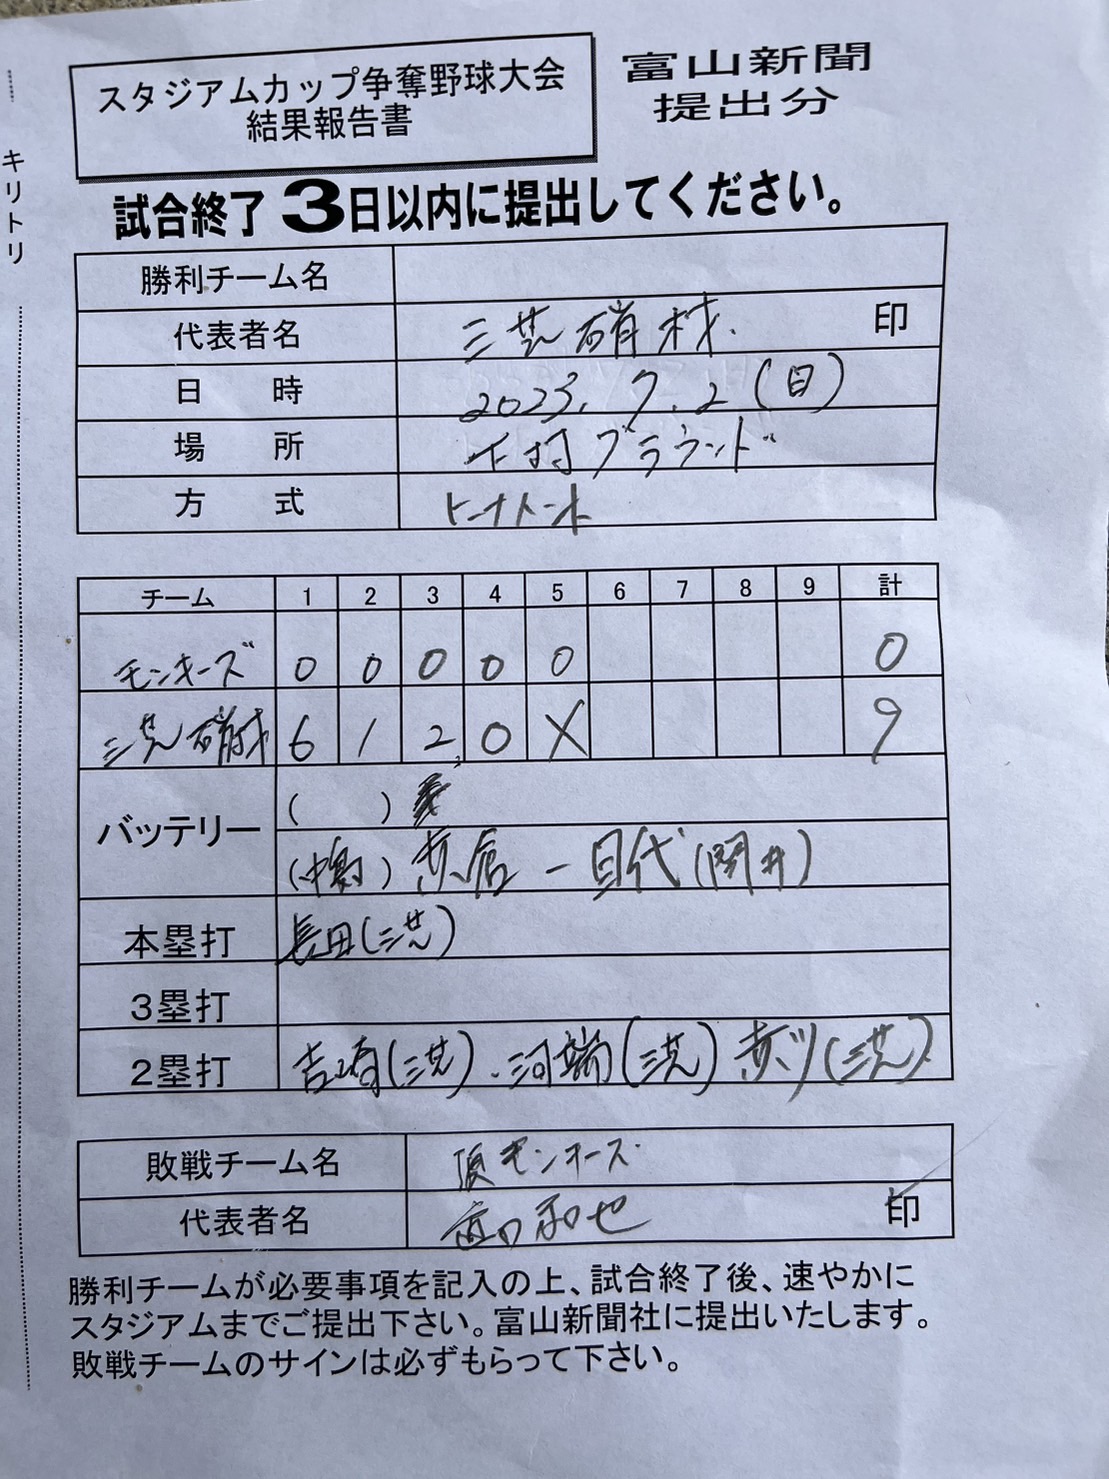 キリトリ
スタジアムカップ争奪野球大会
結果報告書
富山新聞
提出分
試合終了3日以内に提出してください。
勝利チーム名
代表者名 三芝硝材. 印
日 時 2023.7.2(日)
場 所 下村グラウンド
方 式 トーナメント
チーム 1 2 3 4 5 6 7 8 9 計
モンキーズ 0 0 0 0 0 0
三芝硝材 6 1 2 0 X 9
バッテリー ( )
( ) 赤倉 - 目代(開井)
本塁打 長田(三芝)
3塁打
2塁打 吉崎(三芝).河端(三芝) (三芝)
敗戦チーム名 モンキーズ
代表者名 和也 印
勝利チームが必要事項を記入の上、試合終了後、速やかに
スタジアムまでご提出下さい。富山新聞社に提出いたします。
敗戦チームのサインは必ずもらって下さい。